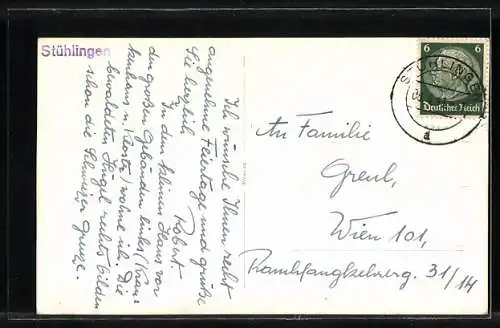 Stühlingen
6 6
Deutsches Reich
STÜHLINGEN
a
Ich wünsche Ihnen recht
angenehme Feiertage und grüße
Sie herzlich
Robert
In dem kleinen Haus vor
den großen Gebäuden links (Kran-
kenhaus u. Kloster) wohne ich. Die
bewaldeten Hügel rechts bilden
schon die Schweizer Grenze.
An Familie
Wien 101,
31/14